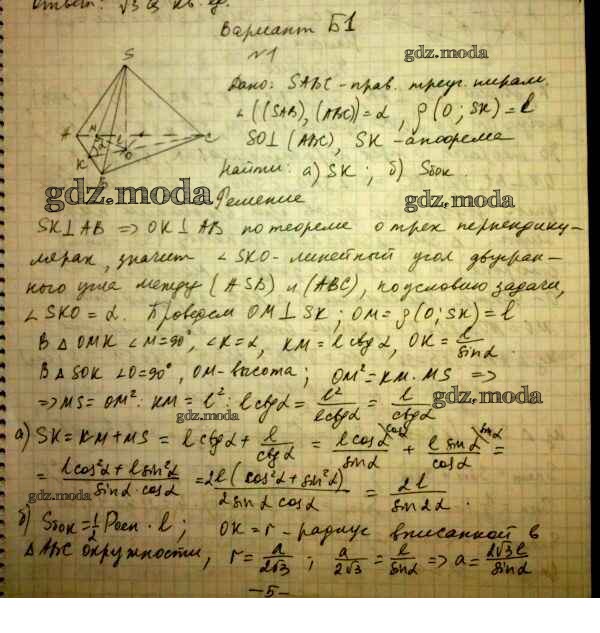 Ответ: √3
Вариант Б1
gdz.moda
№1
Дано: SABC - прав. треуг. пирам.
∠((SAB), (ABC)) = α, ρ(O; SK) = l
SO⊥(ABC), SK - апофема
Найти: а) SK; б) Sбок.
gdz.moda
gdz.moda
Решение
SK⊥AB => OK⊥AB по теореме о трех перпендику-
лярах, значит ∠SKO - линейный угол двугран-
ного угла между (ASB) и (ABC), по условию задачи,
∠SKO = α. Проведем OM⊥SK; OM = ρ(O; SK) = l
В ΔOMK ∠M = 90°, ∠K = α, KM = l ctg α, OK = l/sin α.
В ΔSOK ∠O = 90°, OM - высота; OM² = KM · MS =>
=> MS = OM² : KM = l² : l ctg α = l²/(l ctg α) = l/(ctg α)
gdz.moda
gdz.moda
а) SK = KM + MS = l ctg α + l/(ctg α) = (l cos α)/(sin α) + (l sin α)/(cos α) =
= (l cos² α + l sin² α)/(sin α · cos α) = 2l(cos² α + sin² α)/(2 sin α cos α) = 2l/(sin 2α).
gdz.moda
б) Sбок = 1/2 Pосн · l; OK = r - радиус вписанной в
ΔABC окружности, r = a/(2√3); a/(2√3) = l/(sin α) => a = (2√3 l)/(sin α)
-5-